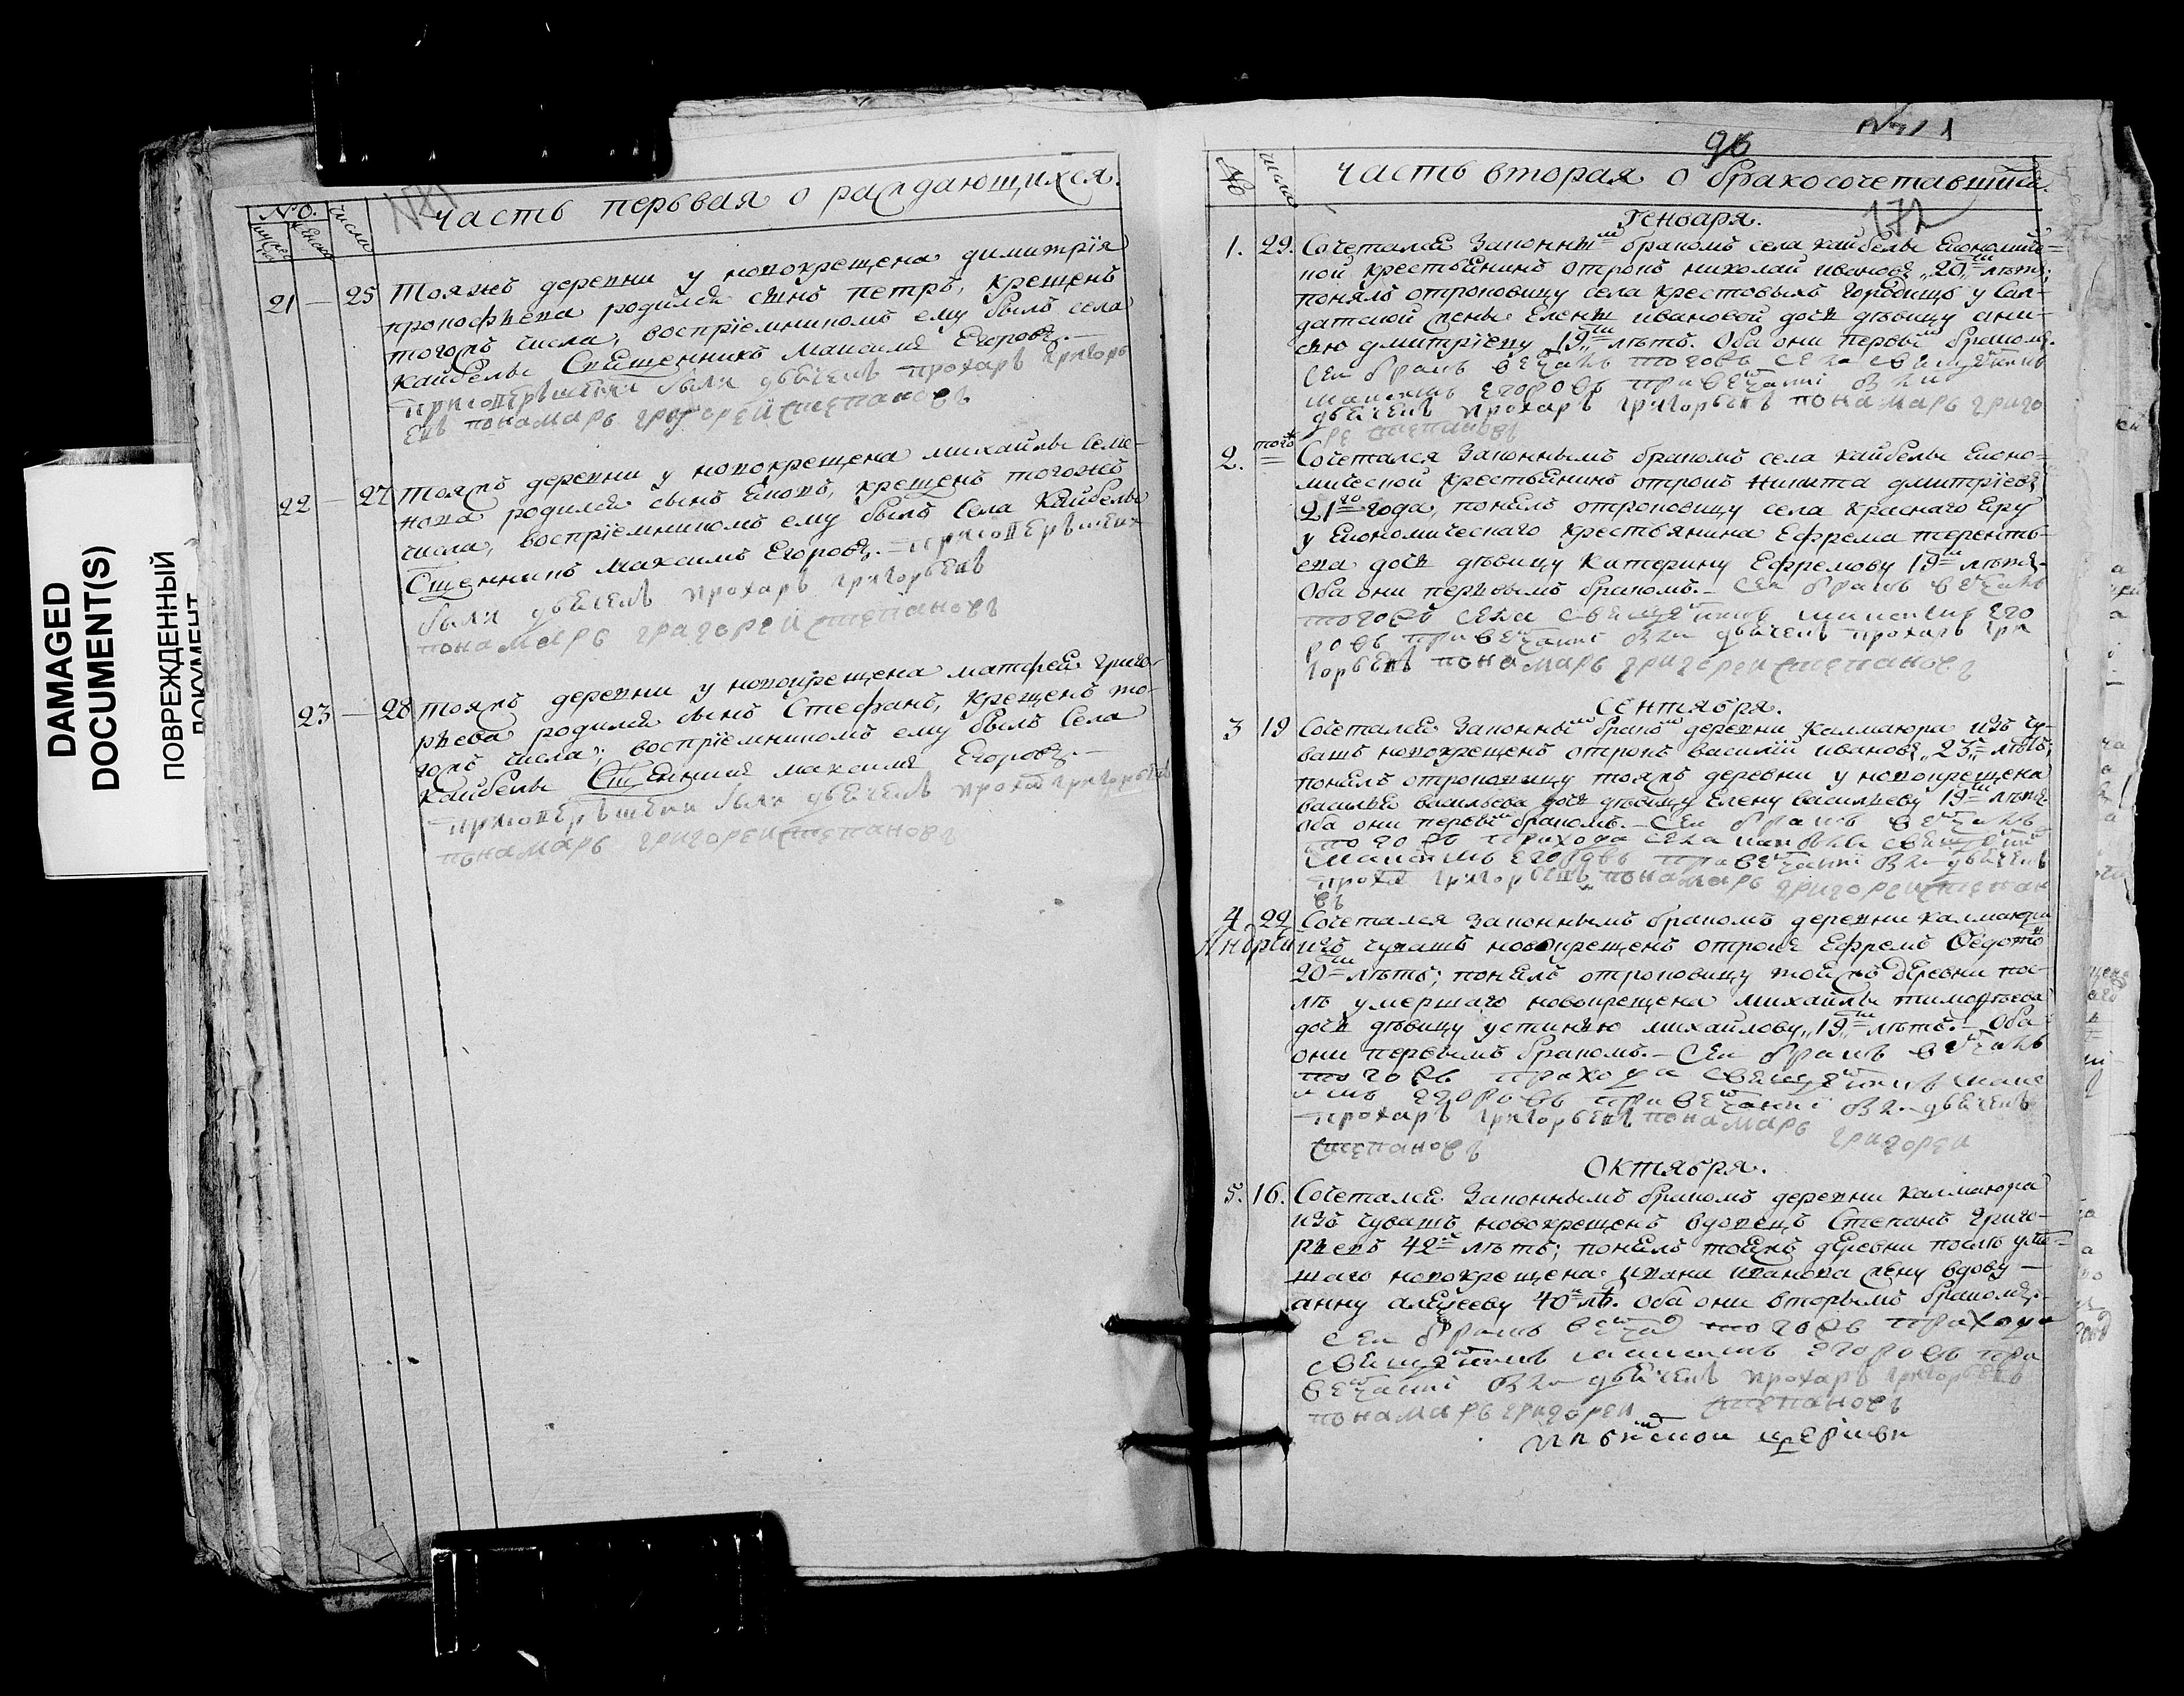 DAMAGED
DOCUMENT(S)
ПОВРЕЖДЕННЫЙ
ДОКУМЕНТ
часть первая о раждающихся.
No. числа
21 — 25 Тояжъ деревни у новокрещена димитрїя
прокофьева родился сынъ петръ, крещенъ
тогожъ числа, воспрїемникомъ ему былъ села
кайбелы Священникъ Максимъ Егоровъ. —
были дьячекъ прохаръ григорь
евъ понамарь григорей степановъ
22 — 27 Тояжъ деревни у новокрещена михайлы семе-
нова родился сынъ Іяковъ, крещенъ тогожъ
числа, воспрїемникомъ ему былъ Села Кайбелы
Сщенникъ Максимъ Егоровъ. —
были дьячекъ прохаръ григорьевъ
понамарь григорей степановъ
23 — 28 Тояжъ деревни у новокрещена матфея григо-
рьева родился сынъ Стефанъ, крещенъ то-
гожъ числа, воспрїемникомъ ему былъ Села
кайбелы Сщенникъ максимъ Егоровъ. —
были дьячекъ прохаръ григорьевъ
понамарь григорей степановъ
96
172
No числа часть вторая о бракосочетавшихся.
Генваря.
1. 29. Сочетался Законнымъ бракомъ села кайбелы Економиче=
ской крестьянинъ отрокъ николай ивановъ 20ти лѣтъ,
понялъ отроковицу села крестовыхъ городищъ у Сал-
датской жены Елены ивановой дочь дѣвицу ани-
сью дмитрїеву 19ти лѣтъ. Оба они первымъ бракомъ.
Сеи бракъ венчалъ тогожъ села священникъ
максимъ егоровъ при венчанїи были
дьячекъ прохаръ григорьевъ понамарь григо
ре степановъ
2. того= Сочетался Законнымъ бракомъ села кайбелы Еконо=
мической крестьянинъ отрокъ никита дмитрїевъ
21го года, понялъ отроковицу села краснаго Яру
у Економическаго крестьянина Ефрема теренть-
ева дочь дѣвицу катерину Ефремову 19ти лѣтъ.
Оба они первымъ бракомъ. — Сеи бракъ венчалъ
тогожъ села священникъ максимъ его
ровъ при венчанїи были дьячекъ прохаръ гри
горьевъ понамарь григореи степановъ
Сентября.
3 19 Сочетался Законнымъ бракомъ деревни Калмаюра изъ чу-
вашъ новокрещенъ отрокъ василїй ивановъ 23хъ лѣтъ,
понялъ отроковицу тояжъ деревни у новокрещена
василья васильева дочь дѣвицу Елену васильеву 19ти лѣтъ.
Оба они первымъ бракомъ. — Сеи бракъ венчалъ
тогожъ прихода села кайбелы священникъ
максимъ егоровъ при венчанїи были дьячекъ
прохаръ григорьевъ понамарь григореи степан
въ
4. 22 Сочетался законнымъ бракомъ деревни калмаюра
изъ чувашъ новокрещенъ отрокъ Ефремъ Ѳедотовъ
20ти лѣтъ; понялъ отроковицу тояжъ деревни пос-
лѣ умершаго новокрещена михайлы тимофѣева
дочь дѣвицу устинью михайлову 19ти лѣтъ. — Оба
они первымъ бракомъ. — Сеи бракъ венчалъ
тогожъ прихода священникъ макс
имъ егоровъ при венчанїи были дьячекъ
прохаръ григорьевъ понамарь григореи
степановъ
Октября.
5. 16. Сочетался Законнымъ бракомъ деревни калмаюра
изъ чувашъ новокрещенъ вдовецъ Степанъ григо-
рьевъ 42хъ лѣтъ; понялъ тояжъ деревни послѣ умер-
шаго новокрещена ивана иванова жену вдову —
анну алексееву 40 лѣт. Оба они вторымъ бракомъ. —
Сеи бракъ венчалъ тогожъ прихода
священникъ максимъ егоровъ при
венчанїи были дьячекъ прохаръ григорьевъ
понамарь григореи степановъ
церкви